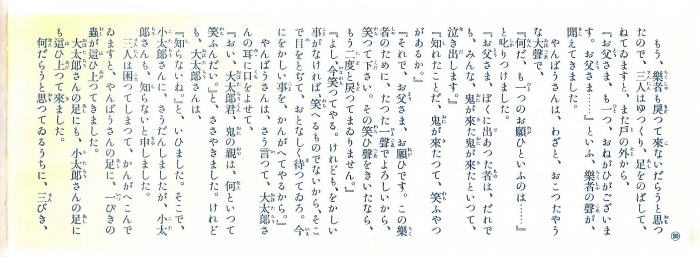 もう、樂者も戻つて來ないだらうと思つ
たので、三人はゆつくり、足をのばして、
ねてゐますと、また戸の外から、
『お父さま、も一つ、おねがひがございま
す。お父さま……』といふ、樂者の聲が、
聞えてきました。
やんばうさんは、わざと、おこつたやう
な大聲で、
『何だ、も一つのお願ひといふのは……』
と叱りつけました。
『お父さま、ぼくに出あつた者は、だれで
も、みんな、鬼が來た鬼が來たといつて、
泣き出します。』
『知れたことだ、鬼が來たつて、笑ふやつ
があるか。』
『それで、お父さま、お願ひです。この樂
者のために、たつた一聲でよろしいから、
笑つて下さい。その笑ひ聲をきいたなら、
もう二度と戻つてまゐりません。』
『よし、今笑つてやる。けれども、をかしい
事がなければ、笑へるものでないから、そこ
で目をとぢて、おとなしく待つてゐろ。今
にをかしい事を、かんがへてやるから。』
やんばうさんは、さう言つて、大太郎さ
んの耳に口をよせて
『おい、大太郎君、鬼の親は、何といつて
笑ふんだい。』と、ささやきました。けれど
も、大太郎さんは、
『知らないね。』と、いひました。そこで、
小太郎さんに、さうだんしましたが、小太
郎さんも、知らないと申しました。
三人は困つてしまつて、かんがへこんで
ゐますと、やんばうさんの足に、一ぴきの
蟲が這ひ上つてきました。
大太郎さんの足にも、小太郎さんの足に
も這ひ上つて來ました。
何だらうと思つてゐるうちに、三びき、